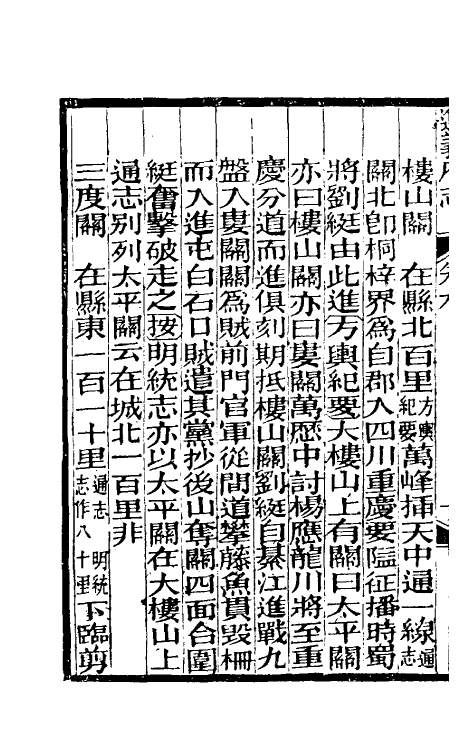 樓山關　在縣北百里方輿紀要萬峰插天中通一線通志
關北卽桐梓界爲自郡入四川重慶要隘征播時蜀
將劉綎由此進方輿紀要大樓山上有關曰太平關
亦曰樓山關亦曰婁關萬歷中討楊應龍川將至重
慶分道而進俱刻期抵樓山關劉綎自綦江進戰九
盤入婁關關爲賊前門官軍從間道攀藤魚貫毀柵
而入進屯白石口賊遣其黨抄後山奪關四面合圍
綎奮擊破走之按明統志亦以太平關在大樓山上
通志别列太平關云在城北一百里非
三度關　在縣東一百一十里通志明統志作八十里下臨剪